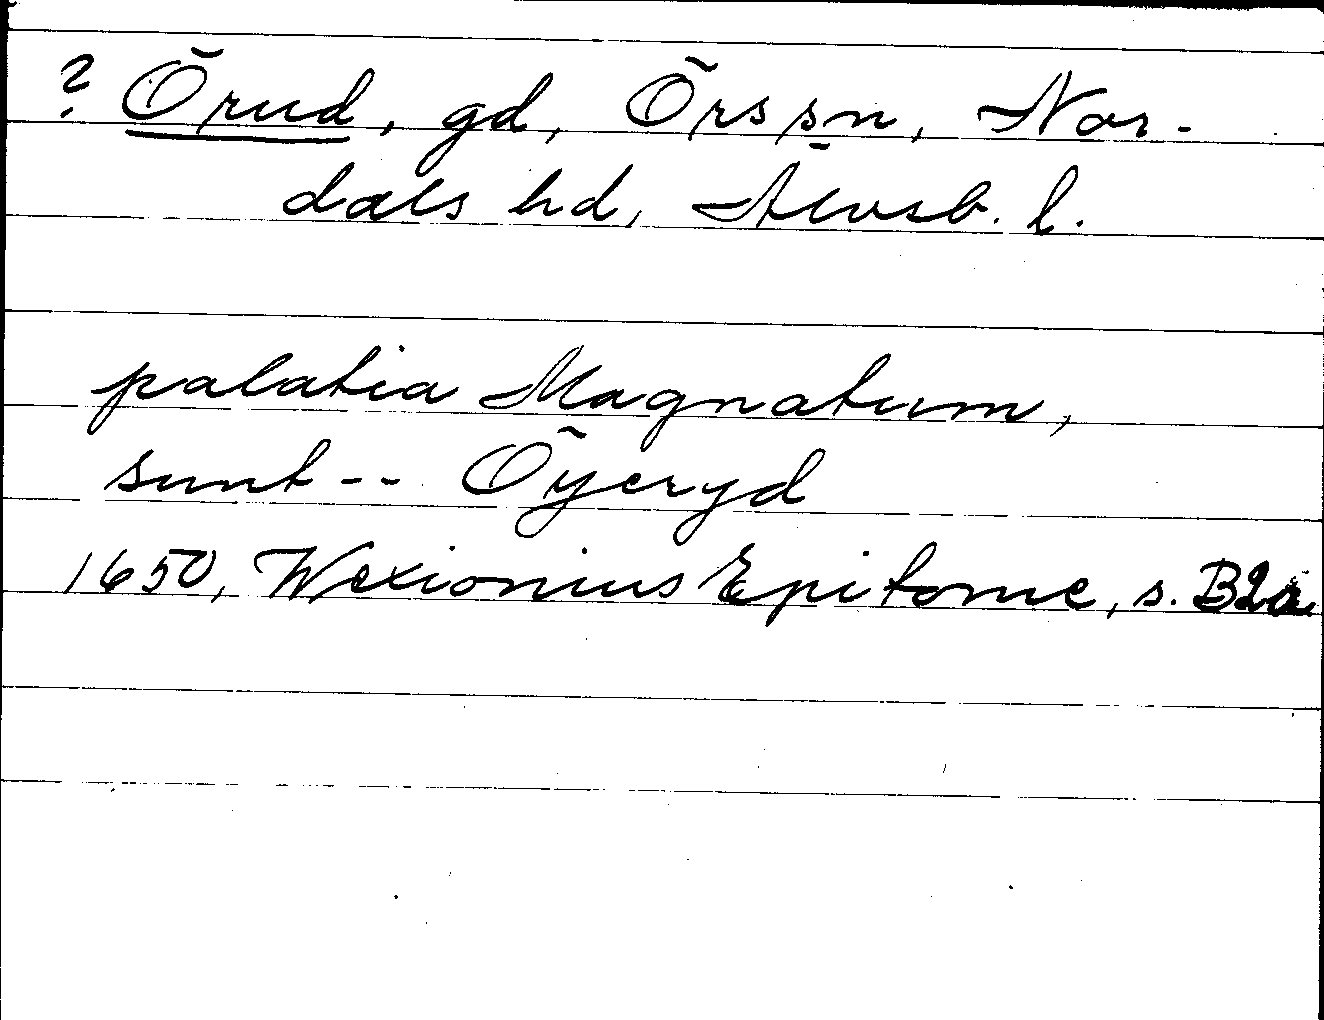 ? Örud, gd, Örs sn, Nor-
dals hd, Älvsb. l.
palatia Magnatum,
sunt -- Öyeryd
1650, Wexionius Epitome, s. B2a